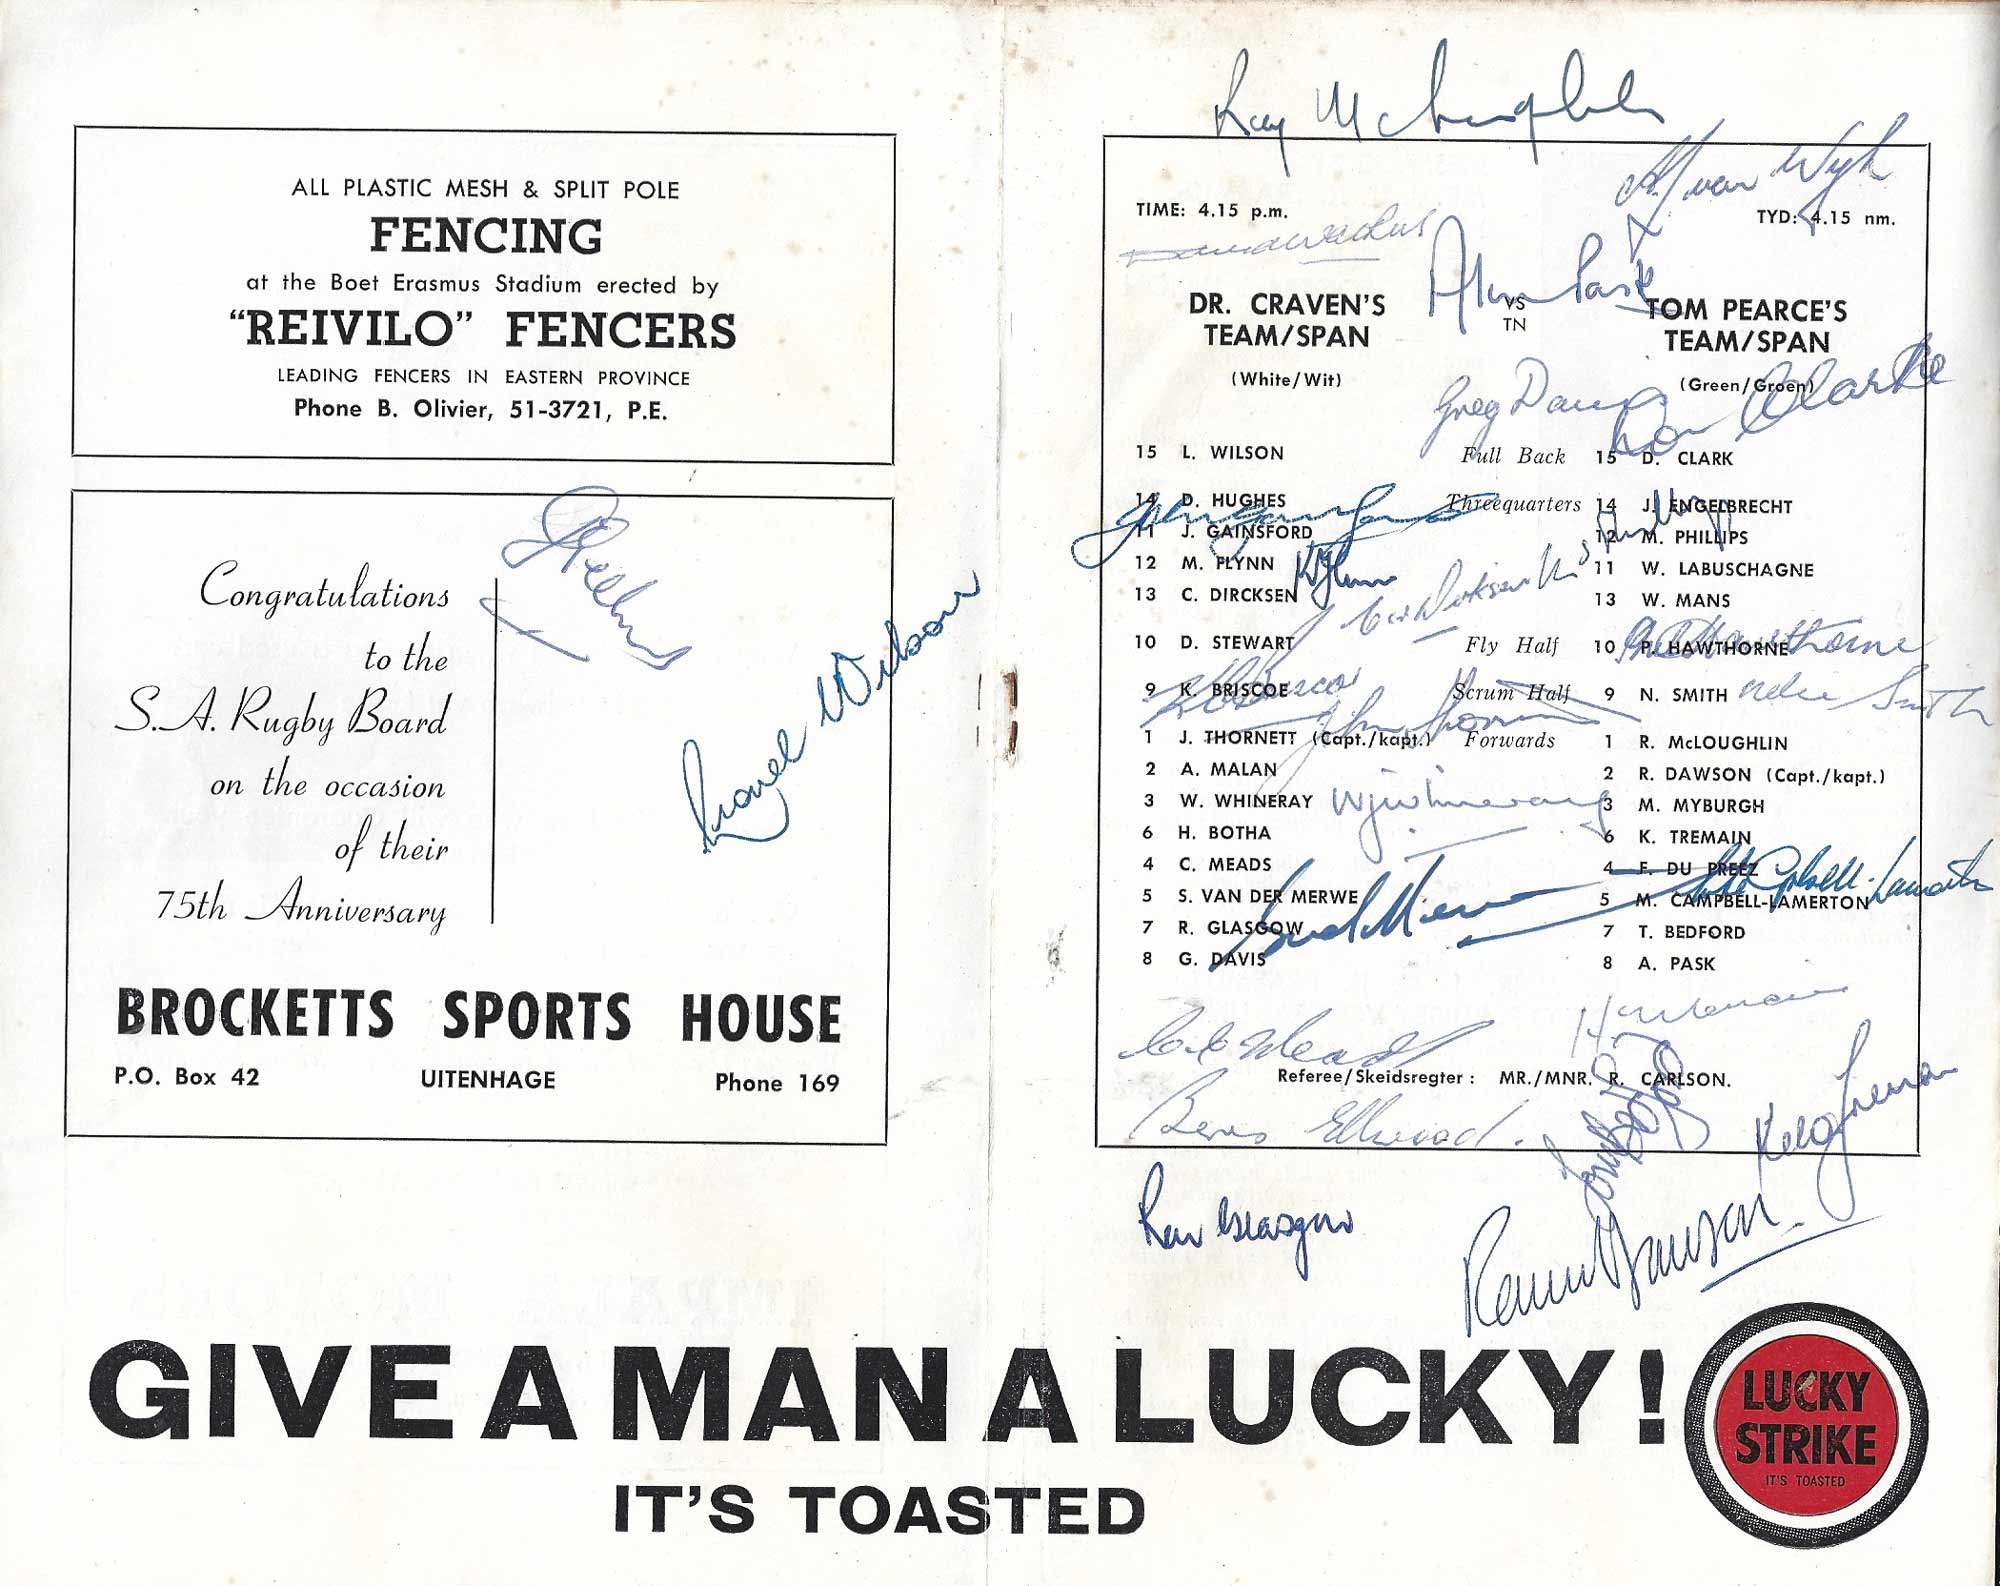 ALL PLASTIC MESH & SPLIT POLE
FENCING
at the Boet Erasmus Stadium erected by
“REIVILO” FENCERS
LEADING FENCERS IN EASTERN PROVINCE
Phone B. Olivier, 51-3721, P.E.
Congratulations
to the
S.A. Rugby Board
on the occasion
of their
75th Anniversary
Lionel Wilson
BROCKETTS SPORTS HOUSE
P.O. Box 42 UITENHAGE Phone 169
Ray McLoughlin
van Wyk
TIME: 4.15 p.m. TYD: 4.15 nm.
Alun Pask
DR. CRAVEN'S TEAM/SPAN
(White/Wit)
VS
TN
TOM PEARCE'S TEAM/SPAN
(Green/Groen)
Greg Davis
Don Clarke
15 L. WILSON Full Back 15 D. CLARK
14 D. HUGHES Threequarters 14 J. ENGELBRECHT
John Gainsford
11 J. GAINSFORD 12 M. PHILLIPS
12 M. FLYNN 11 W. LABUSCHAGNE
13 C. DIRCKSEN 13 W. MANS
10 D. STEWART Fly Half 10 P. HAWTHORNE
Hawthorne
9 K. BRISCOE Scrum Half 9 N. SMITH Nelie Smith
1 J. THORNETT (Capt./kapt.) Forwards 1 R. McLOUGHLIN
2 A. MALAN 2 R. DAWSON (Capt./kapt.)
3 W. WHINERAY WJ Whineray 3 M. MYBURGH
6 H. BOTHA 6 K. TREMAIN
4 C. MEADS 4 F. DU PREEZ
5 S. VAN DER MERWE 5 M. CAMPBELL-LAMERTON
Campbell-Lamerton
7 R. GLASGOW 7 T. BEDFORD
8 G. DAVIS 8 A. PASK
C E Meads
Referee/Skeidsregter: MR./MNR. R. CARLSON.
Beres Ellwood.
Tommy Bedford
Kel Tremain
Ron Glasgow
Ronnie Dawson
GIVE A MAN A LUCKY!
IT'S TOASTED
LUCKY
STRIKE
IT'S TOASTED